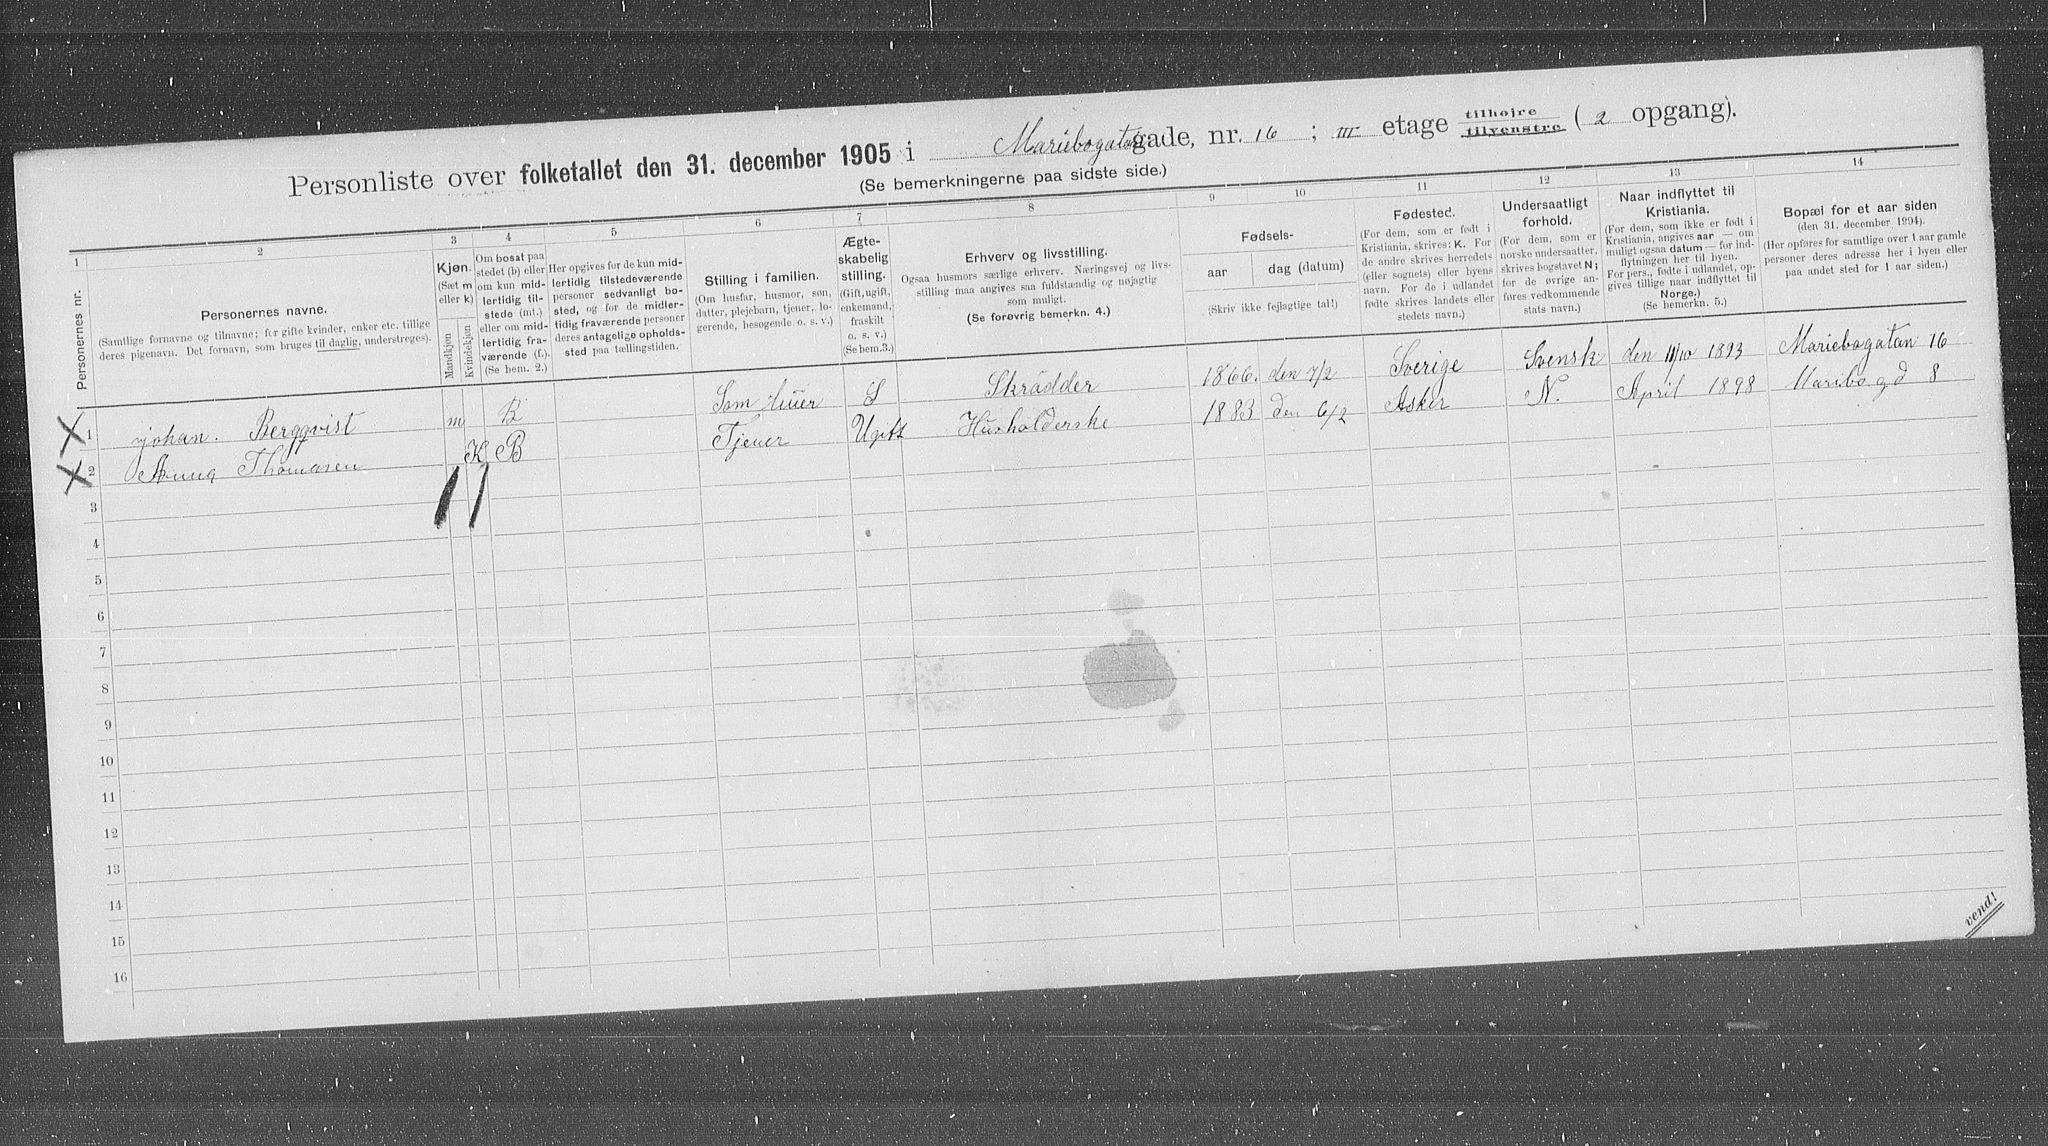 Personliste over folketallet den 31. december 1905 i Mariebogatan gade, nr. 16 ; III etage tilhøjre tilvenstre ( 2 opgang).
(Se bemerkningerne paa sidste side.)
1 2 3 4 5 6 7 8 9 10 11 12 13 14
Personernes nr.
Personernes navne.
(Samtlige fornavne og tilnavne; for gifte kvinder, enker etc. tillige
deres pigenavn. Det fornavn, som bruges til daglig, understreges).
Kjøn.
(Sæt m
eller k)
Mandkjøn
Kvindekjøn
Om bosat paa
stedet (b) eller
om kun mid-
lertidig til-
stede (mt.)
eller om mid-
lertidig fra-
værende (f.).
(Se bem. 2.)
Her opgives for de kun mid-
lertidig tilstedeværende
personer sedvanligt bo-
sted, og for de midler-
tidig fraværende personer
deres antagelige opholds-
sted paa tællingstiden.
Stilling i familien.
(Om husfar, husmor, søn,
datter, plejebarn, tjener, lo-
gerende, besøgende o. s. v.)
Ægte-
skabelig
stilling.
(Gift, ugift,
enkemand,
fraskilt
o. s. v.)
(Se bem.3.)
Erhverv og livsstilling.
Ogsaa husmors særlige erhverv. Næringsvej og livs-
stilling maa angives saa fuldstændig og nøjagtig
som muligt.
(Se forøvrig bemerkn. 4.)
Fødsels-
aar dag (datum)
(Skriv ikke fejlagtige tal!)
Fødested.
(For dem, som er født i
Kristiania, skrives: K. For
de andre skrives herredets
(eller sognets) eller byens
navn. For de i udlandet
fødte skrives landets eller
stedets navn.)
Undersaatligt
forhold.
(For dem, som er
norske undersaatter,
skrives bogstavet N;
for de øvrige an-
føres vedkommende
stats navn.)
Naar indflyttet til
Kristiania.
(For dem, som ikke er født i
Kristiania, angives aar — om
muligt ogsaa datum — for ind-
flytningen her til byen.
For pers., fødte i udlandet, op-
gives tillige naar indflyttet til
Norge.)
(Se bemerkn. 5.)
Bopæl for et aar siden
(den 31. december 1904).
(Her opføres for samtlige over 1 aar gamle
personer deres adresse her i byen eller
paa andet sted for 1 aar siden.)
1 johan. Bergqvist m B Skrädder 1866. den 7/2 Sverige Svensk den 11/10 1893 Mariebogatan 16
2 Anna Thomasen K B Tjener Ugift Husholderske 1883 den 6/2 Asker N. April 1898 Maribo gd 8
3
4
5
6
7
8
9
10
11
12
13
14
15
16
vend!